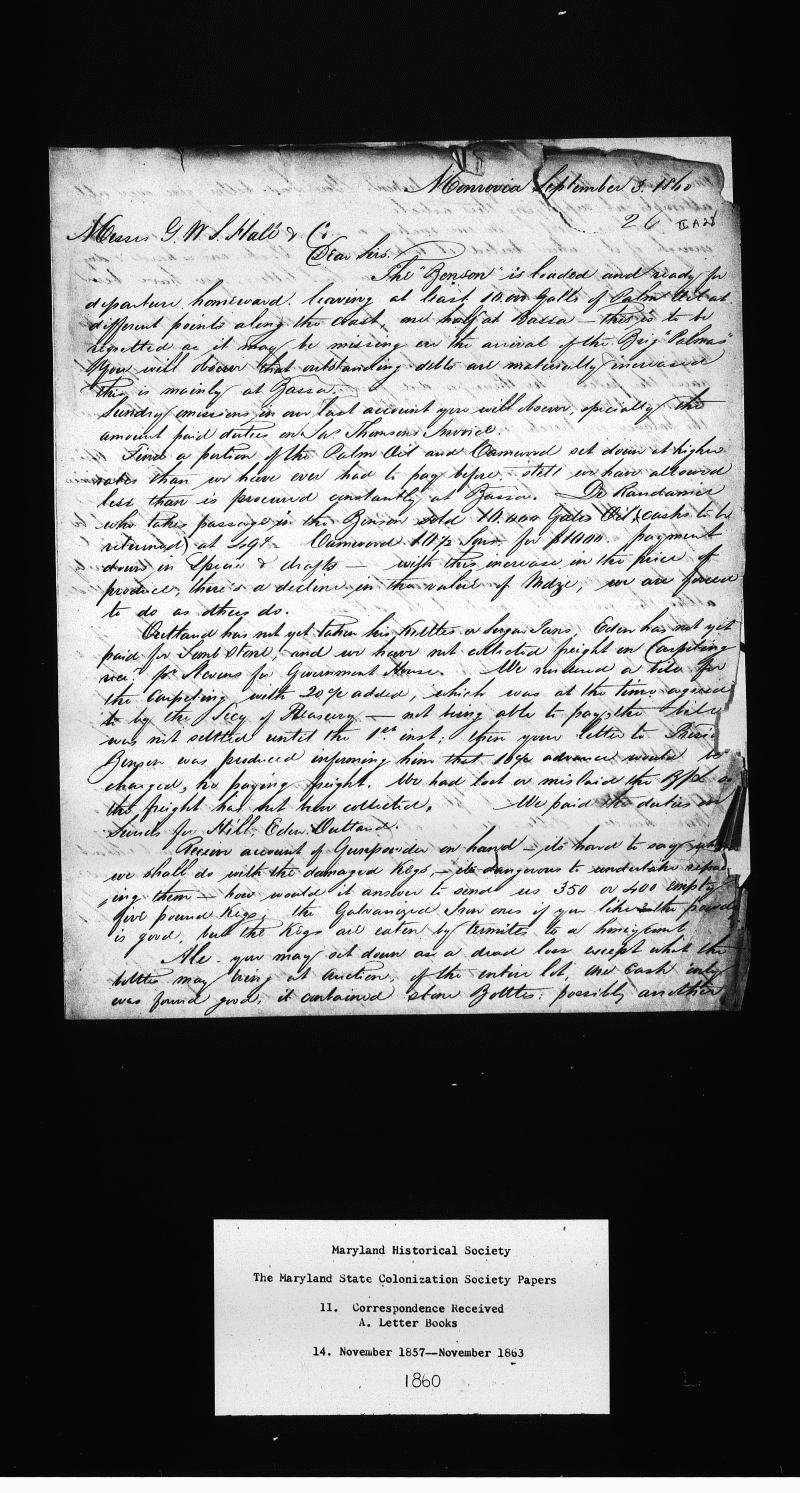 Monrovia September 3. 1860
26 II A 28
Messrs G. W. S. Hall & Co.
Dear Sirs.
The "Benson" is loaded and ready for
departure homeward. leaving at least 10.000 Galls of Palm Oil at
different points along the coast, one half at Bassa — this is to be
regretted as it may be missing on the arrival of the Brig "Palmas"
You will observe that outstanding debts are materially increased
this is mainly at Bassa.
Sundry omissions in our last account you will observe, specially the
amount paid duties on Thomsons Invoice
Find a portion of the Palm Oil and Camwood set down at higher
rates than we have ever had to pay before. still we have allowed
less than is procured constantly at Bassa. De Randamie
who takes passage in the Benson sold 10.000 Galls Oil (casks to be
returned) at 49¢. Camwood 10½ Tons for $1000. payment
down in Specie & drafts — with this increase in the price of
produce, there's a decline in the value of Mdze, we are forced
to do as others do.
Outland has not yet taken his Kettles or Sugar Pans, Eden has not yet
paid for Tomb Stone, and we have not collected freight on Carpeting
rec'd pr Stevens for Government House. We rendered a bill for
the Carpeting with 20% added, which was at the time agreed
to by the Secy of Treasury — not being able to pay, the bill
was not settled until the 1st inst; then your letter to Presid
Benson was produced informing him that 10% advance would be
charged, he paying freight. We had lost or mislaid the B/L so
the freight has not been collected. We paid the duties on
Sunds for Hill, Eden, Outland.
Receive account of Gunpowder on hand — its hard to say what
we shall do with the damaged Kegs, — its dangerous to undertake repac
ing them — how would it answer to send us 350 or 400 empty
five pound Kegs; the Galvanized Iron ones if you like — the powder
is good, but the Kegs are eaten by termites to a honeycomb
Ale. you may set down as a dead loss except what the
bottles may bring at auction, of the entire lot, one Cask only
was found good, it contained stone Bottles: possibly another
Maryland Historical Society
The Maryland State Colonization Society Papers
11. Correspondence Received
A. Letter Books
14. November 1857--November 1863
1860